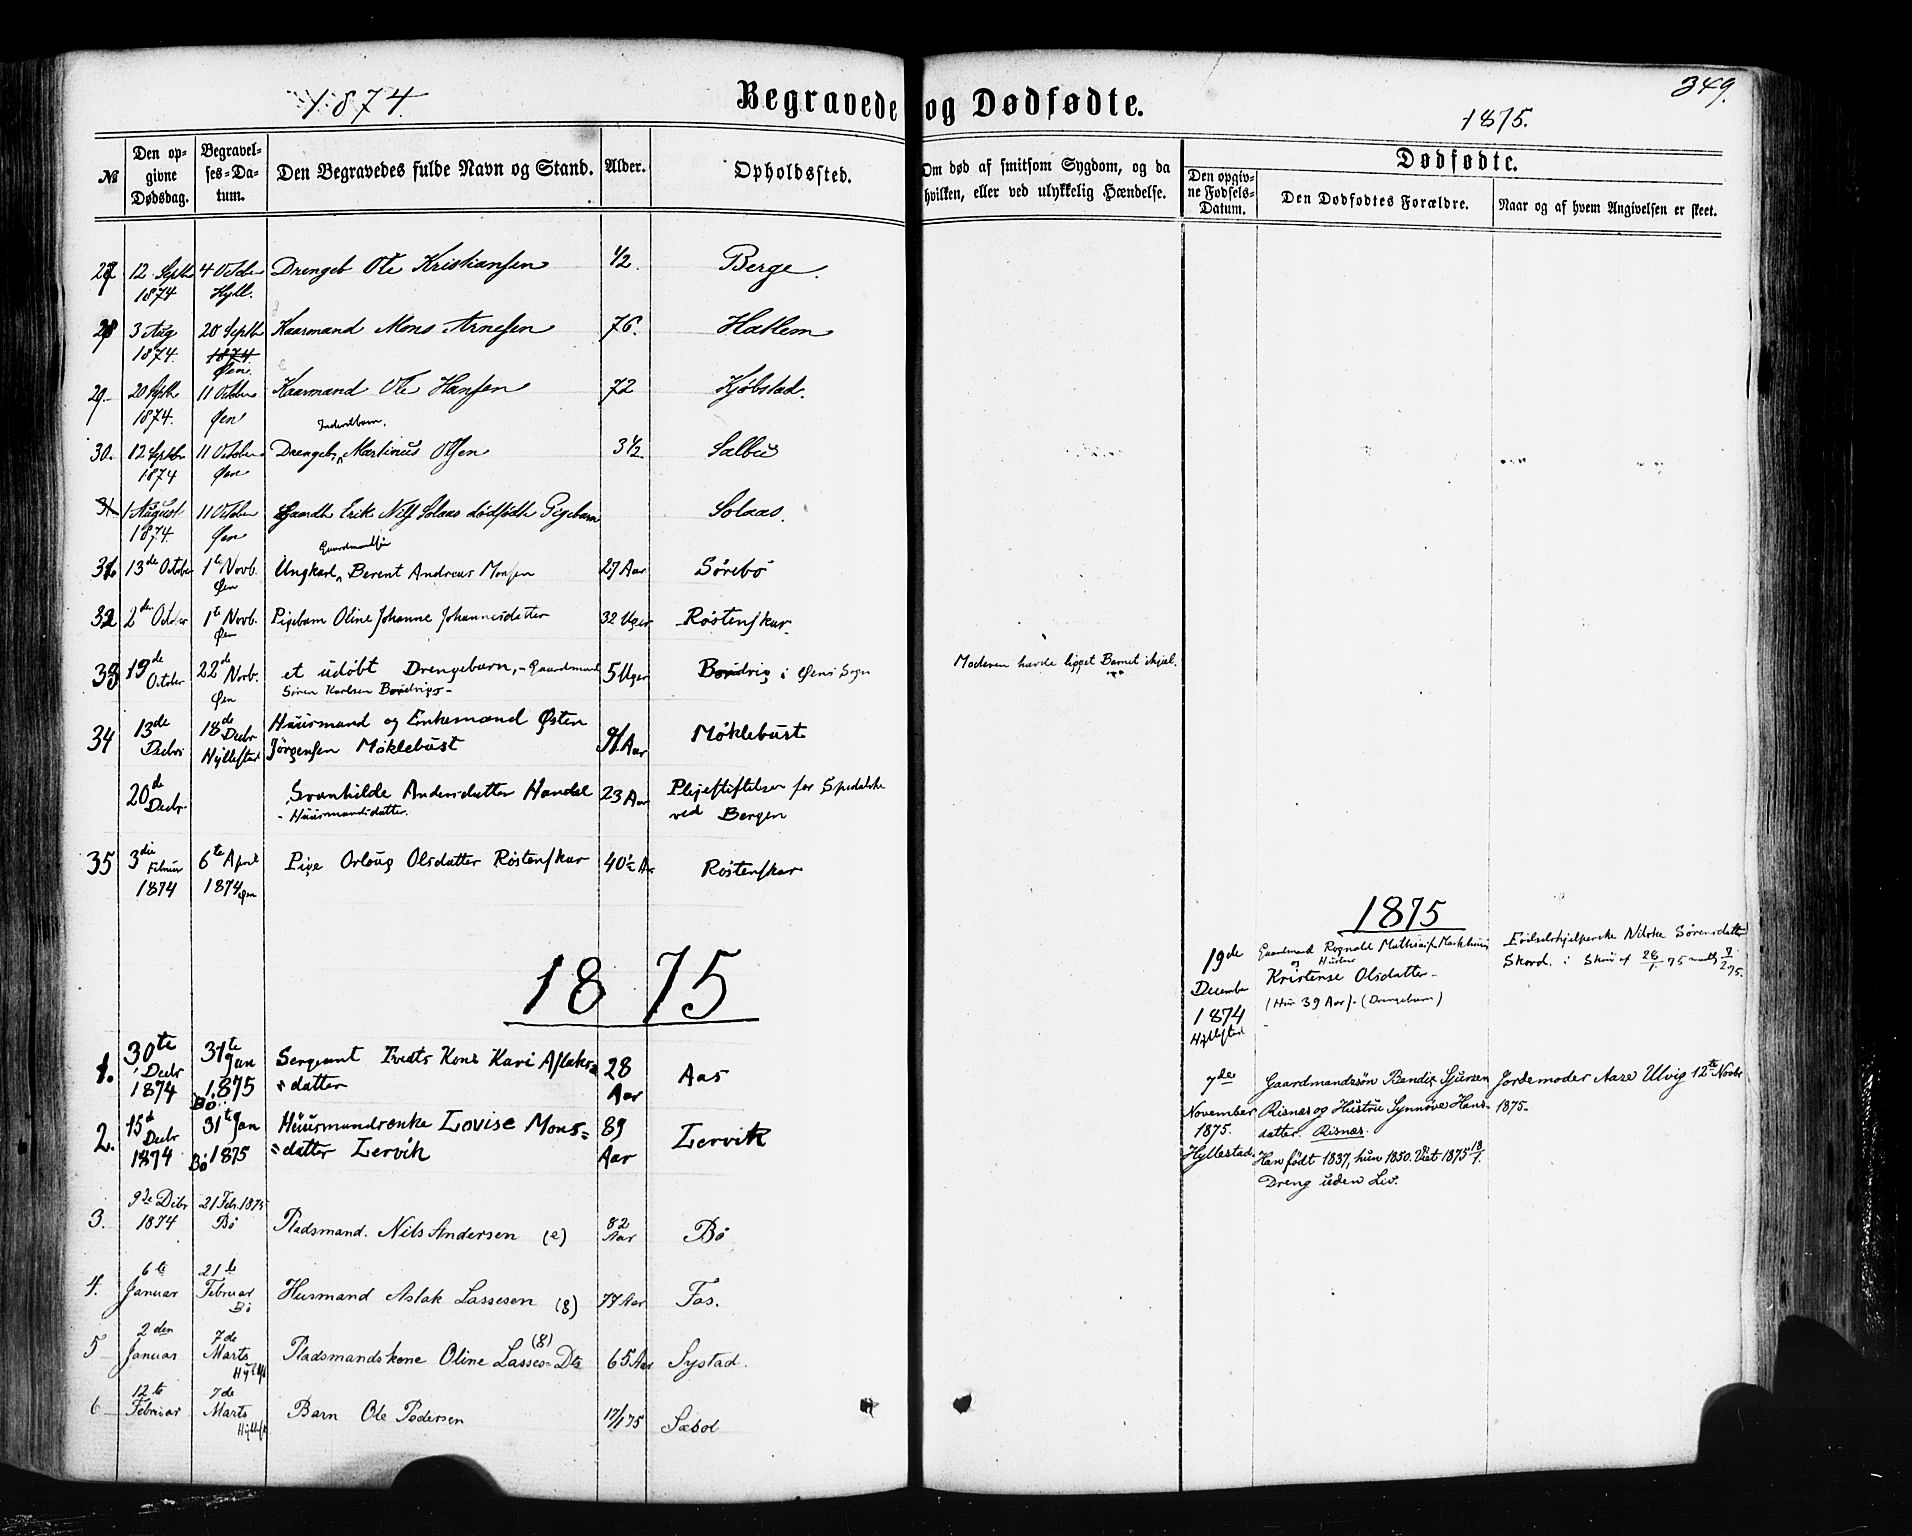 1874.
Begravede og Dødfødte.
349.
1875.
No
Den opgivne Dødsdag.
Begravelses-Datum.
Den Begravedes fulde Navn og Stand.
Alder.
Opholdssted.
Om død af smitsom Sygdom, og da hvilken, eller ved ulykkelig Hændelse.
Dødfødte.
Den opgivne Fødsels-Datum.
Den Dødfødtes Forældre.
Naar og af hvem Angivelsen er skeet.
27 12 Septb 4 Octbr Drengeb Ole Kristiansen 1/2. Berge.
1874 Hyll.
28 3 Aug 20 Septbr Kaarmand Mons Arnesen 76. Hatlem
1874. 1874.
Øen.
29. 20 Septb 11 Octbr Kaarmand Ole Hansen 72 Kjøbstad.
1874. Øen
Inderstbarn.
30. 12 Septbr 11 October Drengeb Martinus Olsen 3 1/2 Salbu
1874 Øen
31 1 August 11 October Gaardb Erik Nils Solaas dødfødte Pigebarn Solaas.
1874. Øen
Gaardmandssøn
31. 13de October 1te Novb. Ungkarl Berent Andreas Monsen 27 Aar Sørebø
Øen
32 2den October 1te Novb. Pigebarn Oline Johanne Johannesdatter 32 Uger Røstenskar
Øen
33 19de October 22de Novb. et udøbt Drengebarn,- Gaardmand 5 Uger Bondvig i Øens Sogn Moderen havde ligget Barnet ihjel.
Øen Søren Karlsen Bondvigs-
34 13de Decbr 18de Decbr Huusmand og Enkemand Østen 91 Aar Møklebust
Hyllestad Jørgensen Møklebust
20de Decbr. Svanhilde Andersdatter Handal 23 Aar Plejestiftelsen for Spedalske
- Huusmandsdatter. ved Bergen
35 3die Februar 6te April Pige Orloug Olsdatter Røstenskar 40 1/2 Aar Røstenskar
1874 1874 Øen
1875
19de Gaardmand Rognald Mathias. Markhus
og Hustru
December Kristense Olsdatter -
1874 (Hun 39 Aar). (Drengebarn)
Hyllestad
Fødselshjelperske Nilske Sørensdatter
Skord. i Skriv af 28/1. 75 modt 7/2 75.
1875
1. 30te Decbr 31te Jan Sergeant Tvedts Kone Kari Aslaks= 28 Aas
1874 1875 =datter Aar
Bø
2. 15d Decbr 31te Jan Huusmandsenke Lovise Mons= 89 Lervik
1874 Bø 1875 =datter Lervik Aar
7de Gaardmandssøn Bendix Sjursen Jordemoder Aase Ulvig 12te Novbr
November Risnes og Hustru Synnøve Hans- 1875-
1875. datter. Risnes.
Hyllestad. Han født 1837, hun 1850. Viet 1875 18/1.
Dreng uden Liv.
3. 9de Decbr 21 Feb. 1875 Pladsmand. Nils Andersen (e) 82 Bø
1874 Bø Aar
4. 6te Januar 21de Februar Husmand Aslak Lassesen (g) 77 Aar Fos.
Bø
5 2den Januar 7de Marts Pladsmandskone Oline Lasses= Dtr (g) 65 Aar Systad.
Hyllest
6 12te Februar 7de Marts Barn Ole Pedersen 17/1 75 Sæbø
Hyllest